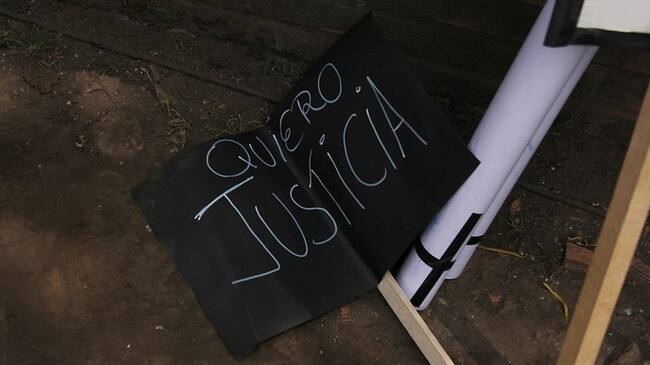 QUIERO.
JUSTiCiA